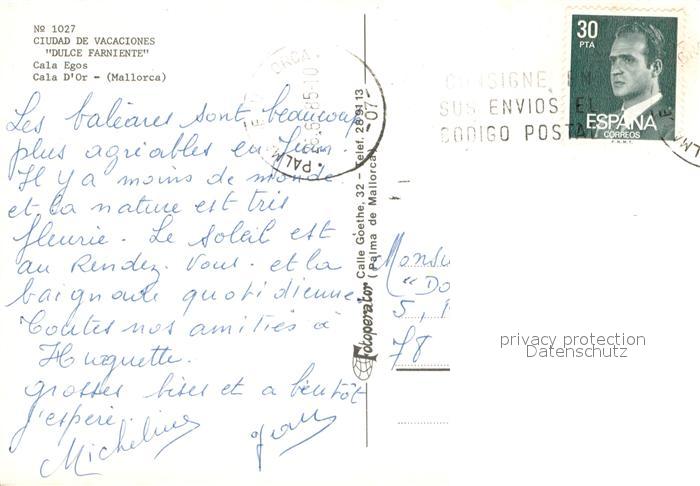 Nº 1027
CIUDAD DE VACACIONES
"DULCE FARNIENTE"
Cala Egos
Cala D'Or - (Mallorca)
Les baléares sont beaucoup
plus agréables en Juin.
Il y a moins de monde
et la nature est très
fleurie. Le soleil est
au Rendez. Vous. et la
baignade quotidienne
Toutes nos amitiés à
Huguette.
grosses bises et a bientôt
j'espère.
Micheline
Fotoperator Calle Goethe, 32 - Telef. 28 91 13
(Palma de Mallorca)
PALMA
-07-
CONSIGNE EN
SUS ENVIOS EL
CODIGO POSTAL
30
PTA
ESPAÑA
CORREOS
F.N.M.T.
Monsu
"Do
5, 
78
privacy protection
Datenschutz